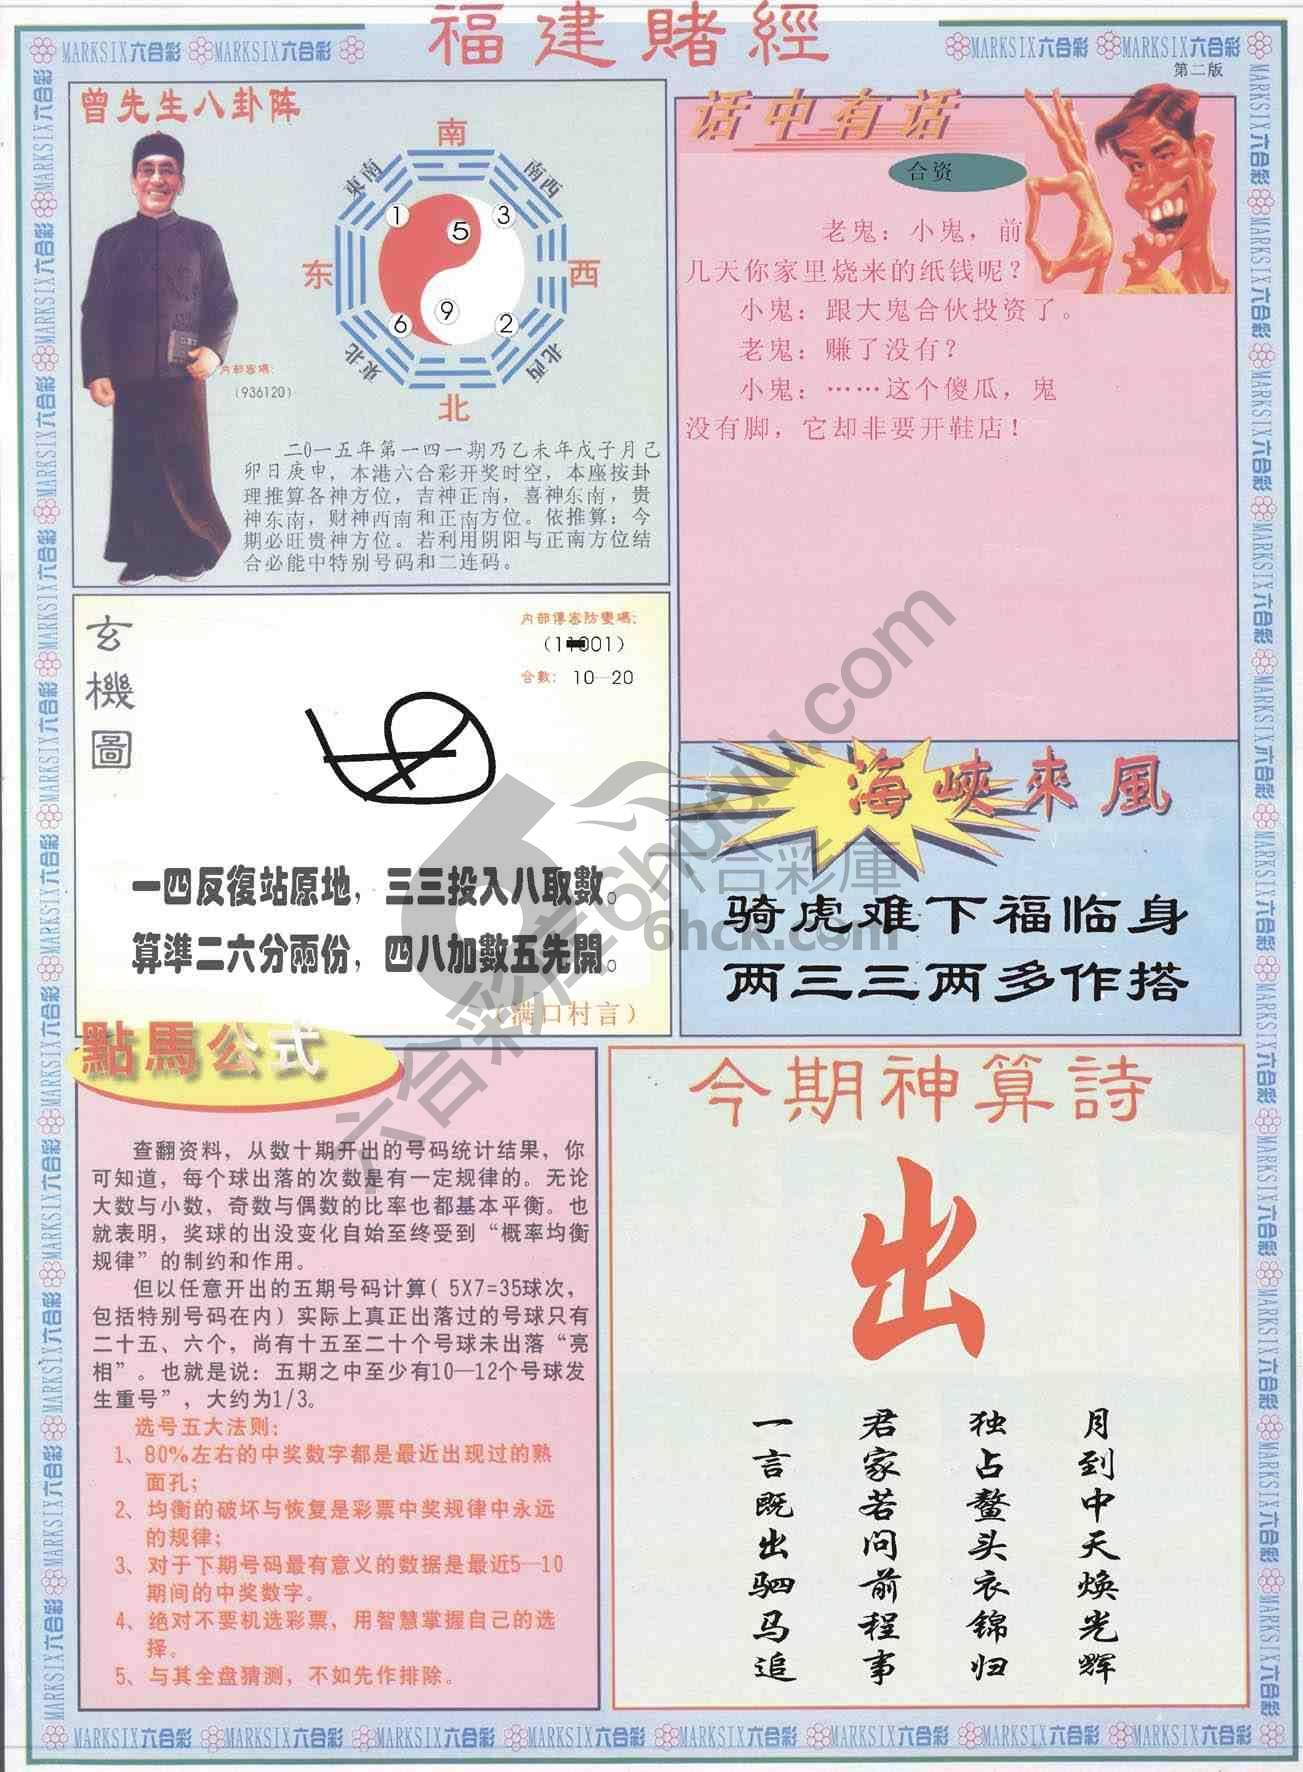 福建賭經
MARKSIX六合彩 MARKSIX六合彩
MARKSIX六合彩 MARKSIX六合彩
第二版
曾先生八卦阵
南
東南
南西
1
3
5
东
西
9
6
2
東北
北西
北
内部密碼：
（936120）
二0一五年第一四一期乃乙未年戊子月己
卯日庚申，本港六合彩开奖时空，本座按卦
理推算各神方位，吉神正南，喜神东南，贵
神东南，财神西南和正南方位。依推算：今
期必旺贵神方位。若利用阴阳与正南方位结
合必能中特别号码和二连码。
话中有话
合资
老鬼：小鬼，前
几天你家里烧来的纸钱呢？
小鬼：跟大鬼合伙投资了。
老鬼：赚了没有？
小鬼：……这个傻瓜，鬼
没有脚，它却非要开鞋店！
玄機圖
内部傳密防變碼：
合數： 10—20
一四反復站原地，三三投入八取數。
算準二六分兩份，四八加數五先開。
（满口村言）
海峽來風
骑虎难下福临身
两三三两多作搭
點馬公式
查翻资料，从数十期开出的号码统计结果，你
可知道，每个球出落的次数是有一定规律的。无论
大数与小数，奇数与偶数的比率也都基本平衡。也
就表明，奖球的出没变化自始至终受到“概率均衡
规律”的制约和作用。
但以任意开出的五期号码计算( 5X7=35球次，
包括特别号码在内) 实际上真正出落过的号球只有
二十五、六个，尚有十五至二十个号球未出落“亮
相”。也就是说：五期之中至少有10—12个号球发
生重号”，大约为1/3。
选号五大法则：
1、80%左右的中奖数字都是最近出现过的熟
面孔；
2、均衡的破坏与恢复是彩票中奖规律中永远
的规律；
3、对于下期号码最有意义的数据是最近5—10
期间的中奖数字。
4、绝对不要机选彩票，用智慧掌握自己的选
择。
5、与其全盘猜测，不如先作排除。
今期神算詩
出
月到中天焕光辉
独占鳌头衣锦归
君家若问前程事
一言既出驷马追
六合彩库6hcuu.com
六合彩庫
6hck.com
MARKSIX六合彩 MARKSIX六合彩 MARKSIX六合彩 MARKSIX六合彩 MARKSIX六合彩 MARKSIX六合彩 MARKSIX六合彩 MARKSIX六合彩